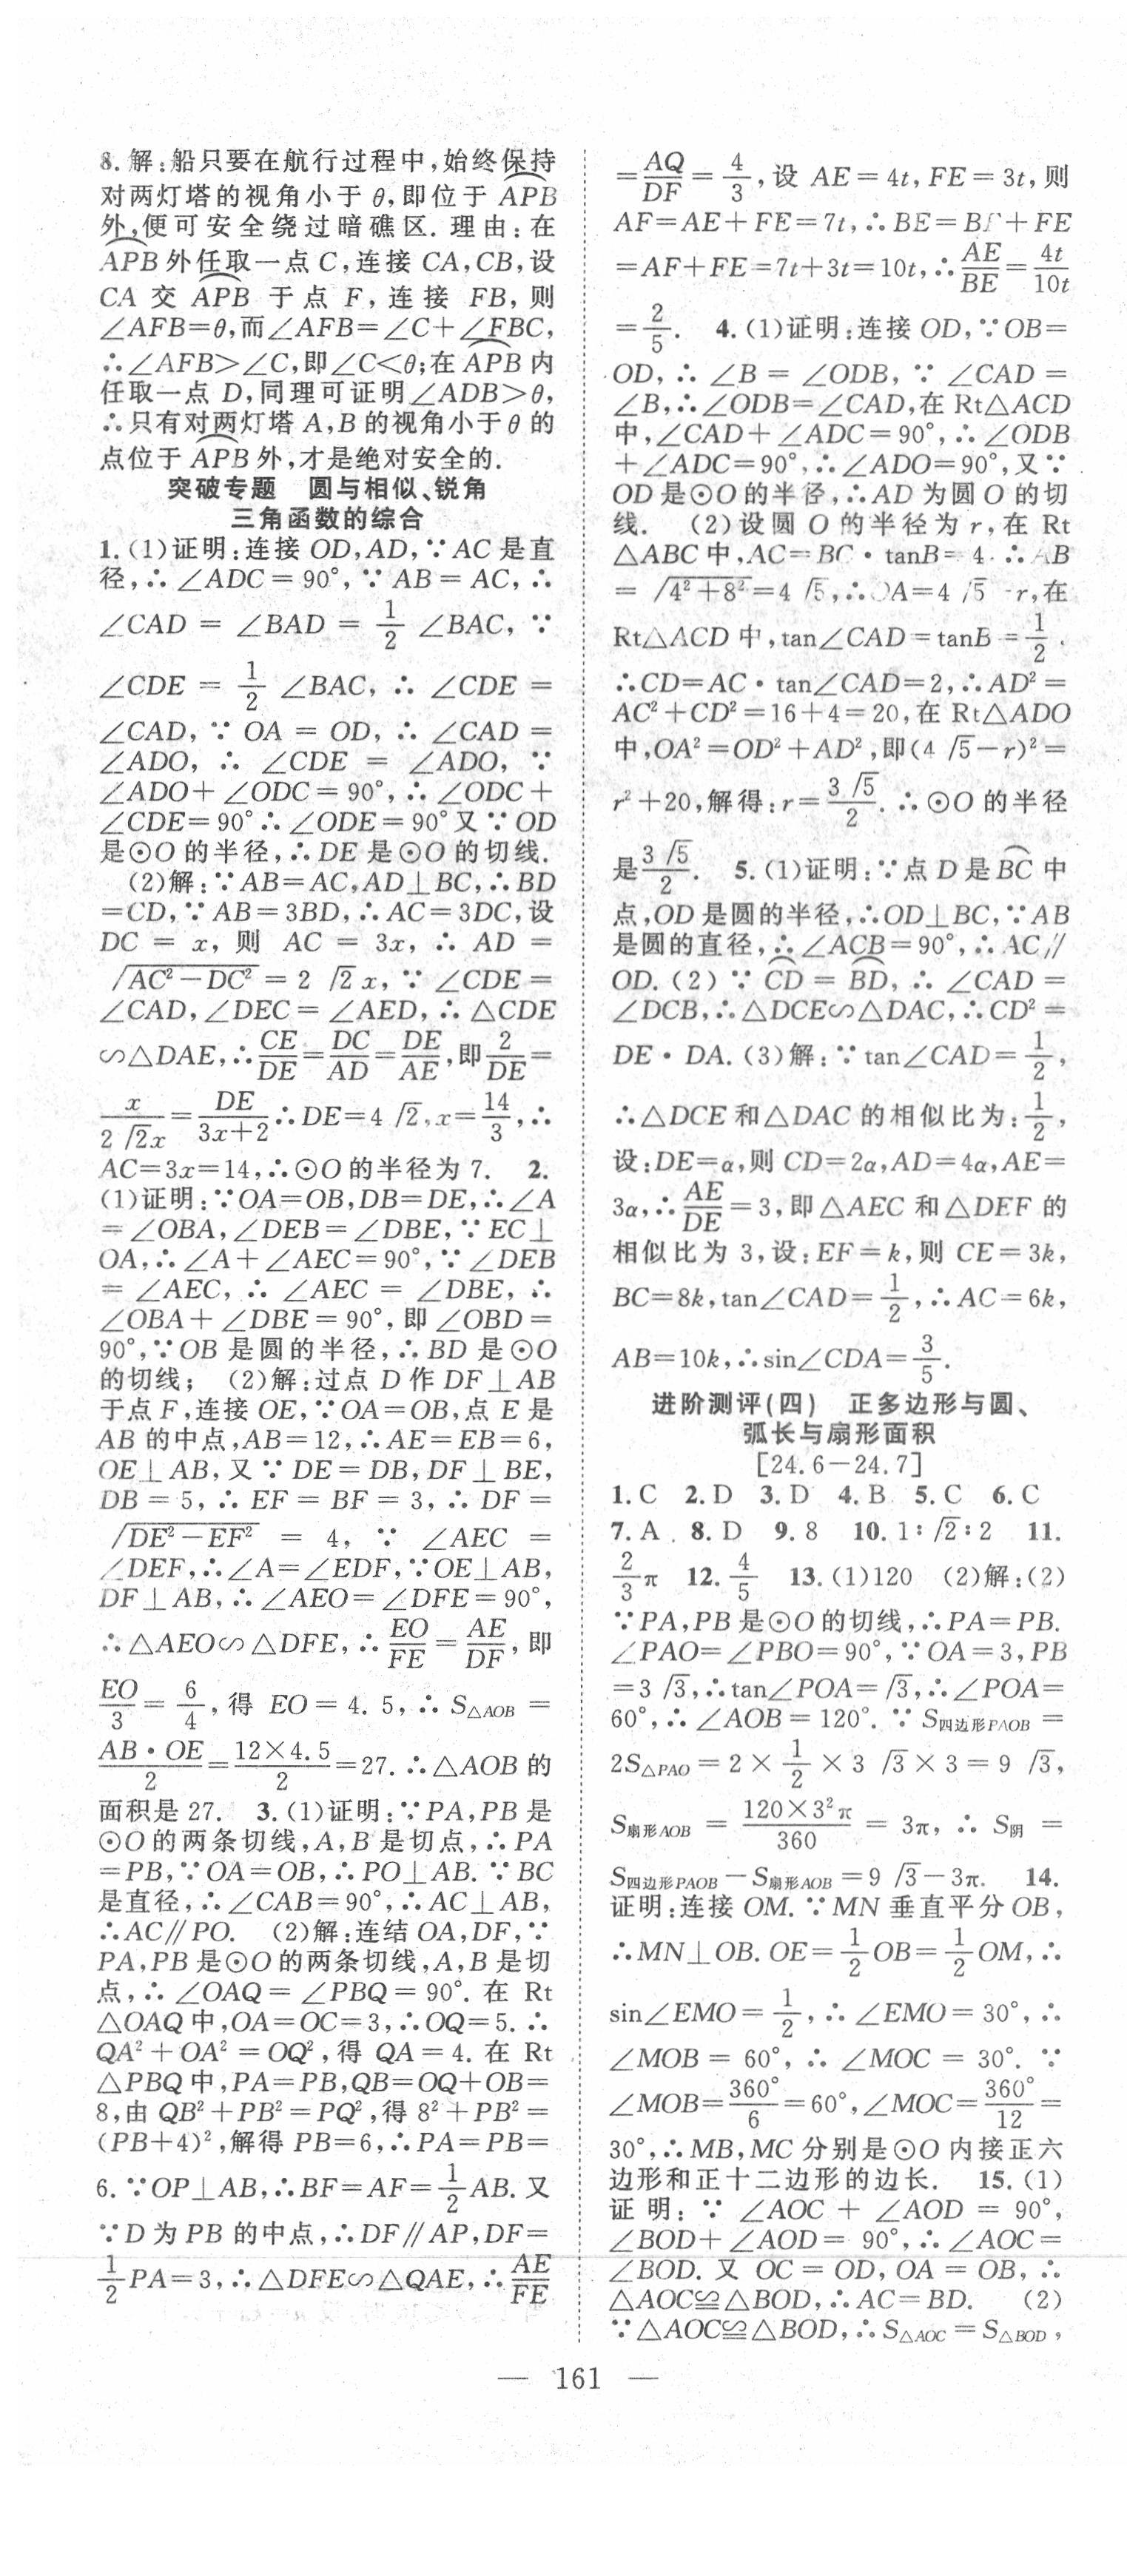 8.解:船只要在航行过程中,始终保持
对两灯塔的视角小于 θ,即位于 APB
外,便可安全绕过暗礁区. 理由:在
APB外任取一点C,连接CA,CB,设
CA 交 APB 于点 F, 连接 FB, 则
∠AFB=θ,而∠AFB=∠C+∠FBC,
∴∠AFB>∠C,即∠C<θ;在APB内
任取一点 D,同理可证明∠ADB>θ,
∴只有对两灯塔A,B的视角小于θ的
点位于APB外,才是绝对安全的.
突破专题 圆与相似、锐角
三角函数的综合
1.(1)证明:连接 OD,AD,∵AC 是直
径,∴∠ADC=90°,∵AB=AC,∴
∠CAD = ∠BAD = 1/2 ∠BAC, ∵
∠CDE = 1/2 ∠BAC, ∴ ∠CDE =
∠CAD, ∵ OA = OD, ∴ ∠CAD =
∠ADO, ∴ ∠CDE = ∠ADO, ∵
∠ADO+∠ODC=90°,∴∠ODC+
∠CDE=90°∴∠ODE=90°又∵OD
是⊙O的半径,∴DE是⊙O的切线.
(2)解:∵AB=AC,AD⊥BC,∴BD
=CD,∵AB=3BD,∴AC=3DC,设
DC = x, 则 AC = 3x, ∴ AD =
√(AC²-DC²) = 2√2x, ∵ ∠CDE =
∠CAD,∠DEC=∠AED,∴△CDE
∽△DAE,∴CE/DE=DC/AD=DE/AE,即2/DE=
x/(2√2x)=DE/(3x+2)∴DE=4√2,x=14/3,∴
AC=3x=14,∴⊙O的半径为7. 2.
(1)证明:∵OA=OB,DB=DE,∴∠A
=∠OBA,∠DEB=∠DBE,∵EC⊥
OA,∴∠A+∠AEC=90°,∵∠DEB
= ∠AEC, ∴ ∠AEC = ∠DBE, ∴
∠OBA+∠DBE=90°,即∠OBD=
90°,∵OB 是圆的半径,∴BD 是⊙O
的切线; (2)解:过点 D 作 DF⊥AB
于点F,连接OE,∵OA=OB,点E是
AB 的中点,AB=12,∴AE=EB=6,
OE⊥AB,又∵DE=DB,DF⊥BE,
DB = 5, ∴ EF = BF = 3, ∴ DF =
√(DE²-EF²) = 4, ∵ ∠AEC =
∠DEF,∴∠A=∠EDF,∵OE⊥AB,
DF⊥AB,∴∠AEO=∠DFE=90°,
∴△AEO∽△DFE,∴EO/FE=AE/DF,即
EO/3=6/4,得 EO=4.5,∴S△AOB =
AB·OE/2=12×4.5/2=27.∴△AOB的
面积是27. 3.(1)证明:∵PA,PB是
⊙O的两条切线,A,B是切点,∴PA
=PB,∵OA=OB,∴PO⊥AB.∵BC
是直径,∴∠CAB=90°,∴AC⊥AB,
∴AC∥PO. (2)解:连结OA,DF,∵
PA,PB是⊙O的两条切线,A,B是切
点,∴∠OAQ=∠PBQ=90°. 在 Rt
△OAQ中,OA=OC=3,∴OQ=5.∴
QA²+OA²=OQ²,得 QA=4. 在 Rt
△PBQ中,PA=PB,QB=OQ+OB=
8,由 QB²+PB²=PQ²,得8²+PB²=
(PB+4)²,解得PB=6,∴PA=PB=
6.∵OP⊥AB,∴BF=AF=1/2AB.又
∵D为PB的中点,∴DF∥AP,DF=
1/2PA=3,∴△DFE∽△QAE,∴AE/FE
=AQ/DF=4/3,设 AE=4t,FE=3t,则
AF=AE+FE=7t,∴BE=BF+FE
=AF+FE=7t+3t=10t,∴AE/BE=4t/10t
=2/5. 4.(1)证明:连接 OD,∵OB=
OD,∴∠B=∠ODB,∵∠CAD=
∠B,∴∠ODB=∠CAD,在Rt△ACD
中,∠CAD+∠ADC=90°,∴∠ODB
+∠ADC=90°,∴∠ADO=90°,又∵
OD是⊙O的半径,∴AD为圆O的切
线. (2)设圆 O 的半径为 r,在 Rt
△ABC中,AC=BC·tanB=4.∴AB
=√(4²+8²)=4√5,∴OA=4√5-r,在
Rt△ACD中,tan∠CAD=tanB=1/2.
∴CD=AC·tan∠CAD=2,∴AD²=
AC²+CD²=16+4=20,在Rt△ADO
中,OA²=OD²+AD²,即(4√5-r)²=
r²+20,解得:r=3√5/2.∴⊙O的半径
是3√5/2. 5.(1)证明:∵点D是BC中
点,OD是圆的半径,∴OD⊥BC,∵AB
是圆的直径,∴∠ACB=90°,∴AC∥
OD.(2)∵CD=BD,∴∠CAD=
∠DCB,∴△DCE∽△DAC,∴CD²=
DE·DA.(3)解:∵tan∠CAD=1/2,
∴△DCE和△DAC的相似比为:1/2,
设:DE=a,则CD=2a,AD=4a,AE=
3a,∴AE/DE=3,即△AEC和△DEF的
相似比为 3,设:EF=k,则 CE=3k,
BC=8k,tan∠CAD=1/2,∴AC=6k,
AB=10k,∴sin∠CDA=3/5.
进阶测评(四) 正多边形与圆、
弧长与扇形面积
[24.6-24.7]
1.C 2.D 3.D 4.B 5.C 6.C
7.A 8.D 9.8 10.1∶√2∶2 11.
2/3π 12.4/5 13.(1)120 (2)解:(2)
∵PA,PB是⊙O的切线,∴PA=PB.
∠PAO=∠PBO=90°,∵OA=3,PB
=3√3,∴tan∠POA=√3,∴∠POA=
60°,∴∠AOB=120°.∵S四边形PAOB=
2S△PAO=2×1/2×3√3×3=9√3,
S扇形AOB = 120×3²π/360 = 3π, ∴ S阴 =
S四边形PAOB-S扇形AOB=9√3-3π. 14.
证明:连接 OM.∵MN 垂直平分 OB,
∴MN⊥OB.OE=1/2OB=1/2OM,∴
sin∠EMO=1/2,∴∠EMO=30°,∴
∠MOB = 60°, ∴ ∠MOC = 30°. ∵
∠MOB=360°/6=60°,∠MOC=360°/12=
30°,∴MB,MC 分别是⊙O 内接正六
边形和正十二边形的边长. 15.(1)
证明: ∵ ∠AOC + ∠AOD = 90°,
∠BOD+∠AOD=90°,∴∠AOC=
∠BOD.又 OC=OD,OA=OB,∴
△AOC≌△BOD,∴AC=BD. (2)
∵△AOC≌△BOD,∴S△AOC=S△BOD,
— 161 —